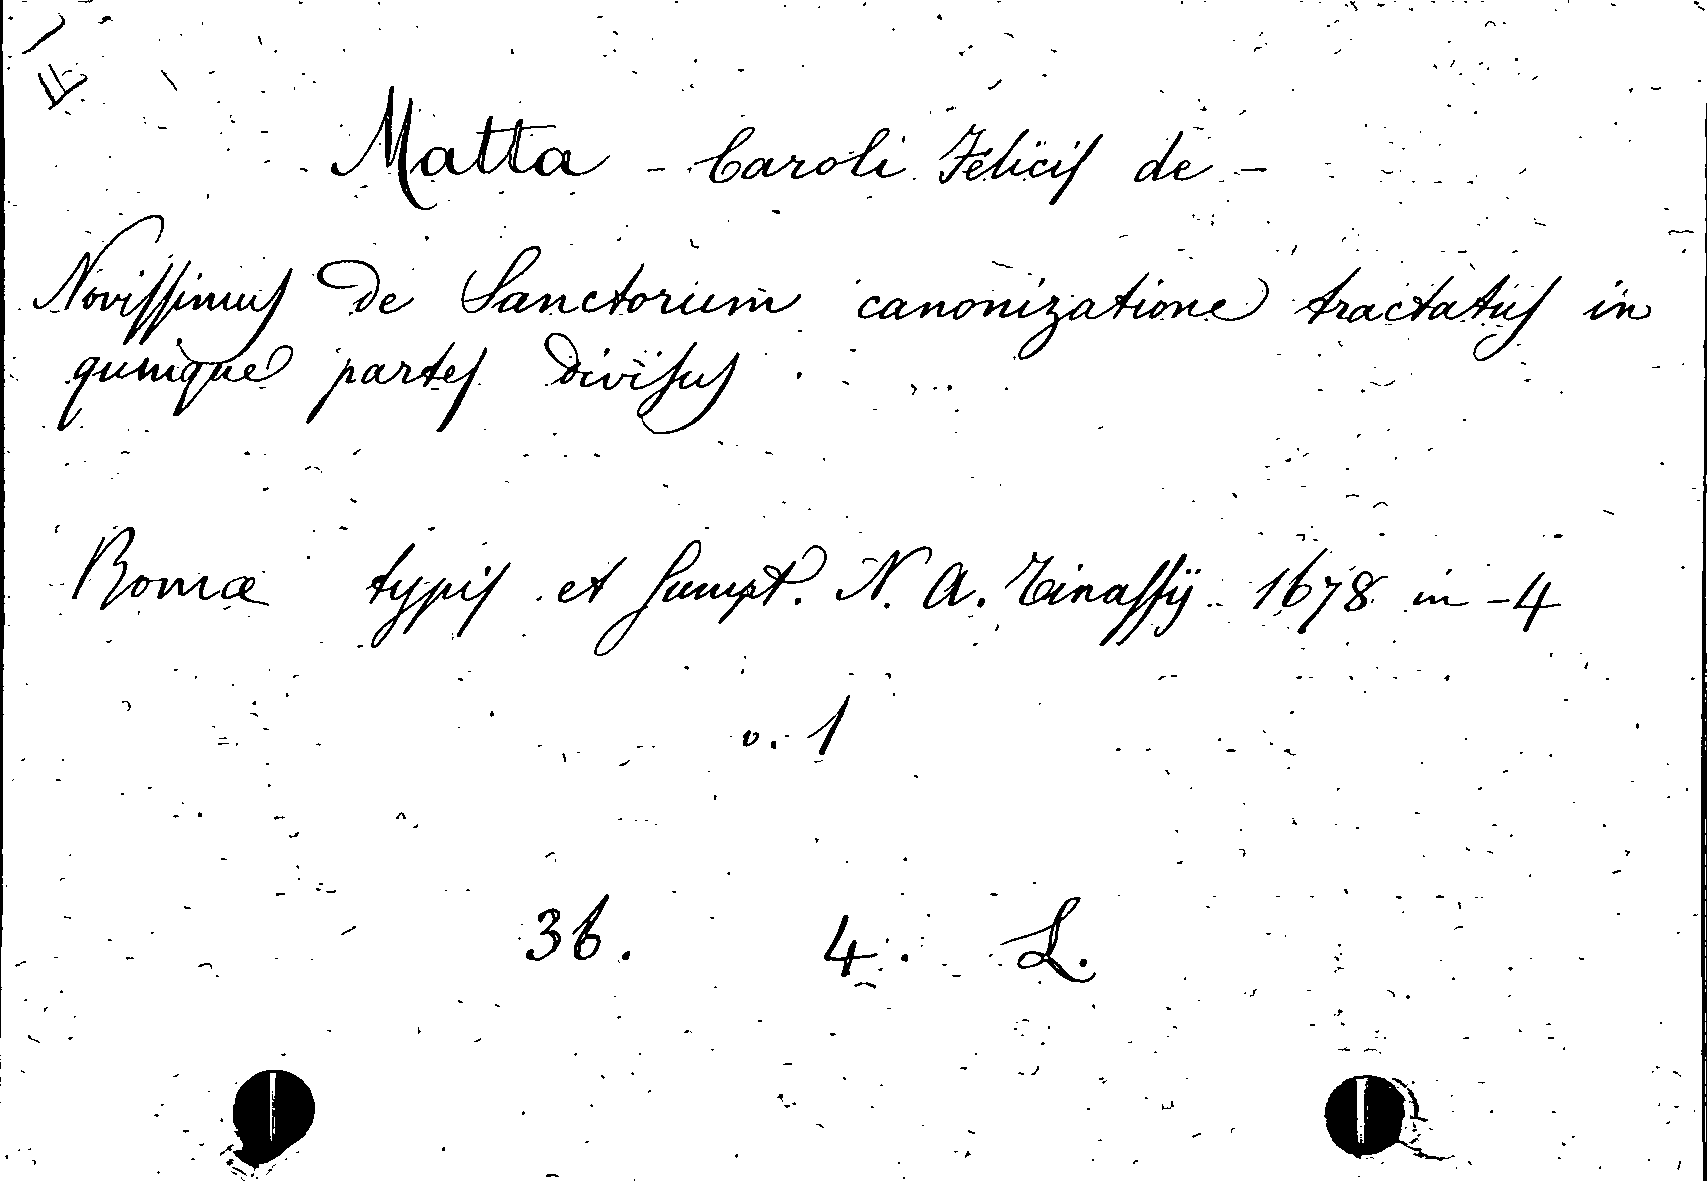 Matta - Caroli Felicis de -
Novissimus de Sanctorum canonizatione tractatus in
quinque partes divisus
Romæ typis et sumpt. N. A. Tinassÿ 1678 in - 4
v. 1
36. 4. L.